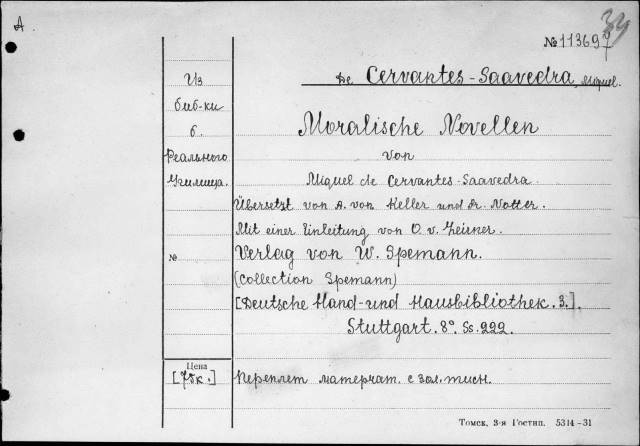 A
39
№ 11369
De Cervantes-Saavedra, Miguel.
Из
биб-ки
б.
Реального
Училища.
№
Moralische Novellen
von
Miguel de Cervantes-Saavedra.
Übersetzt von A. von Keller und Fr. Notter.
Mit einer Einleitung von O. v. Leixner.
Verlag von W. Spemann.
(Collection Spemann)
[Deutsche Hand-und Hausbibliothek. 3.].
Stuttgart. 8°. Ss. 222.
Цена
[75к.]
Переплет матерчат. с зол. тисн.
Томск, 3-я Гостип. 5314-31